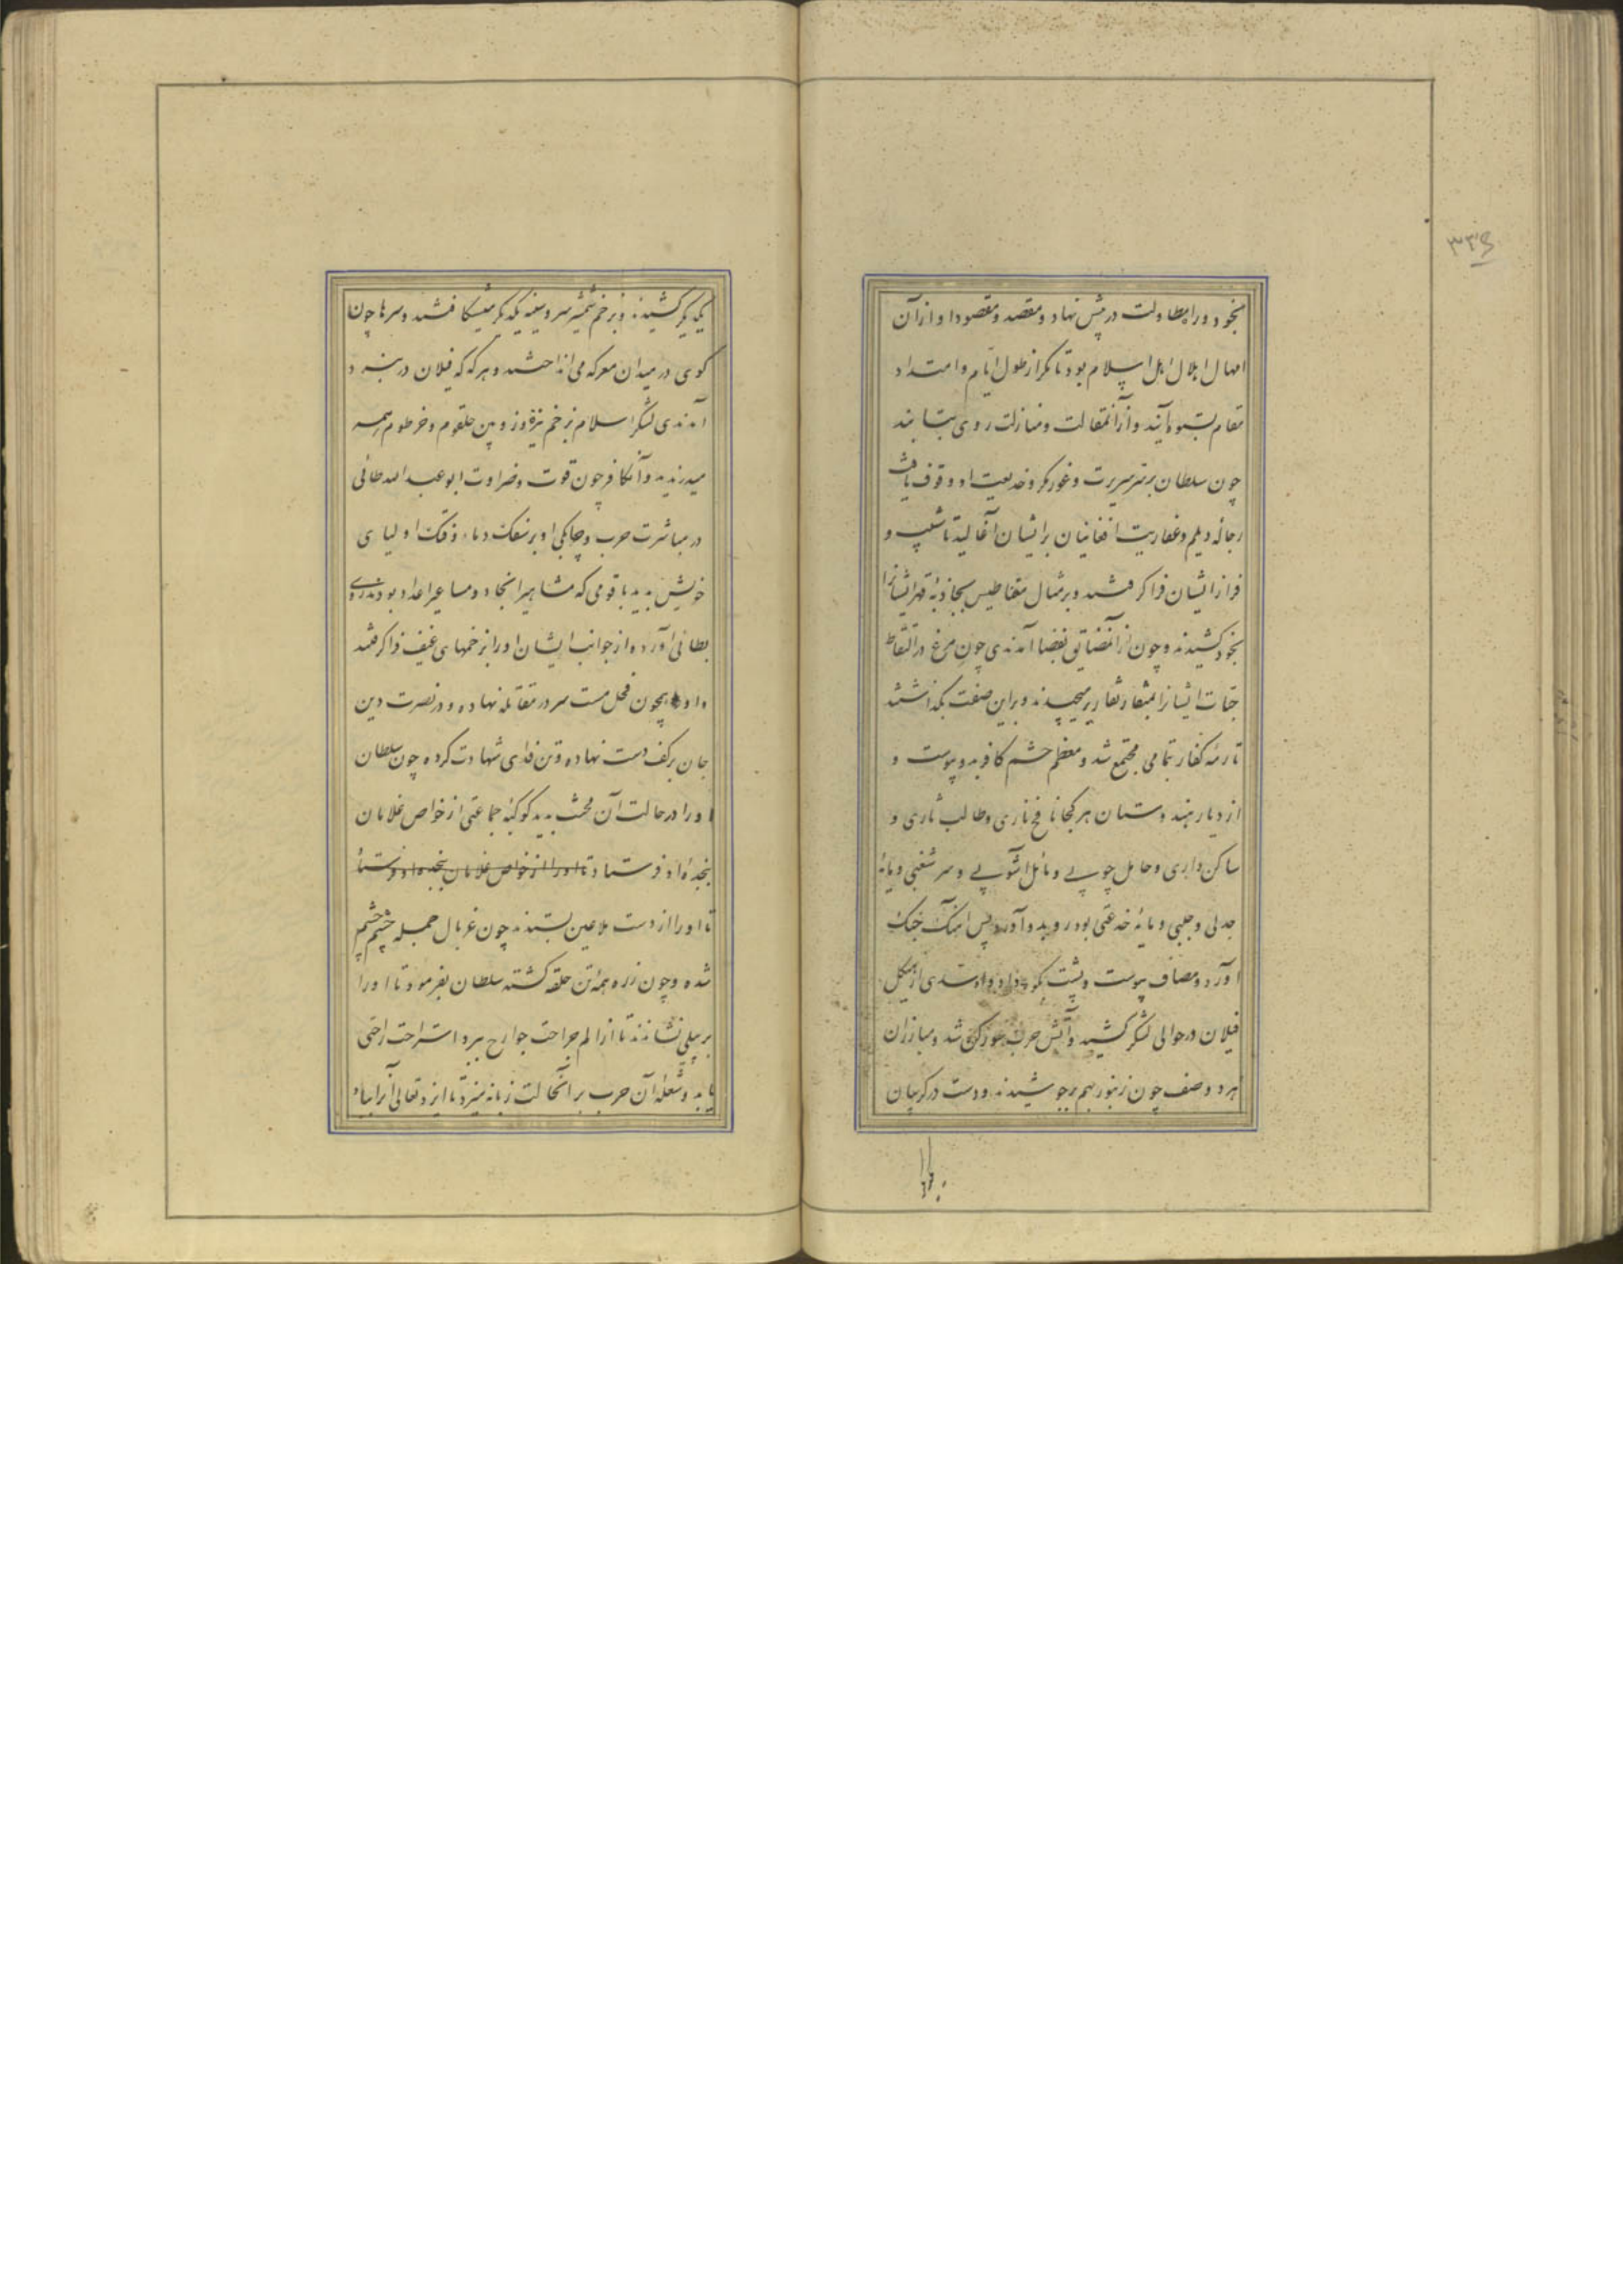 ۳۳۶
بخود و راه مطاولت در پیش نهاد و مقصد و مقصود او از آن
امهال املال اهل اسلام بود تا مگر از طول ایام و امتداد
مقام بستوه آیند و از آن مقالت و منازلت روی بتابند
چون سلطان بر سر سریرت و غور مکر و خدیعت او وقوف یافت
رجاله دیلم و عفاریت افغانیان بر ایشان آغالید تا شیب و
فراز ایشان فرا گرفتند و بر مثال مقناطیس بجاذبهٔ قهر ایشانرا
بخود کشیدند و چون از آن مضایق بفضا آمدندی چون مرغ در التقاط
حبات ایشانرا بمنقار میچیدند و براین صفت بگذاشتند
تا رمهٔ کفار بتمامی مجتمع شد و معظم حشم کافر بدو پیوست و
از دیار هندوستان هر کجا نافخ ناری و طالب ثاری و
ساکن داری و حامل چوبی و مائل آشوبی و سر شغبی و مایهٔ
جدلی و جلبی و مایهٔ خدعتی بود رو بدو آورد پس آهنگ جنگ
آورد و مصاف پیوست و پشت بکوه داد و سدی از هیکل
فیلان در حوالی لشکر کشید و آتش حرب شد و مبارزان
هر دو صف چون زنبور بهم برجوشیدند و دست در گریبان
یکدیگر کشیدند و بزخم شمشیر سر و سینه یکدیگر میشکافتند و سرها چون
گوی در میدان معرکه می انداختند و هرگه که فیلان در نبرد
آمدندی لشکر اسلام بزخم نیزه و زوبین حلقوم و خرطوم همه
میدرانیدند و آن کافر چون قوت و ضراوت ابو عبد الله طائی
در مباشرت حرب و چابکی او بر سفک دماء و فتک اولیای
خویش بدید با قومی که مشاهیر انجاد و مساعیر اعداد بودند روی
بطائی آورده از جوانب ایشان او را بزخمهای عنیف فرا گرفتند
و او همچون فحل مست سر در مقاتله نهاده و در نصرت دین
جان بر کف دست نهاده و تن فدای شهادت کرده چون سلطان
او را در حالت آن محنت بدید کوکبهٔ جماعتی از خواص غلامان
بنجدهٔ او فرستاد تا او را از خواص غلامان بنجده او فرستاد
تا او را از دست ملاعین بستدند چون غربال جمله چشم چشم
شده و چون زره همه تن حلقه گشته سلطان بفرمود تا او را
بر پیلی نشاندند تا از الم جراحت جوارح ببرد استراحت راحتی
یابد و شعلهٔ آن حرب بر آن حالت زبانه میزد تا ایزد تعالی آنرا بباد